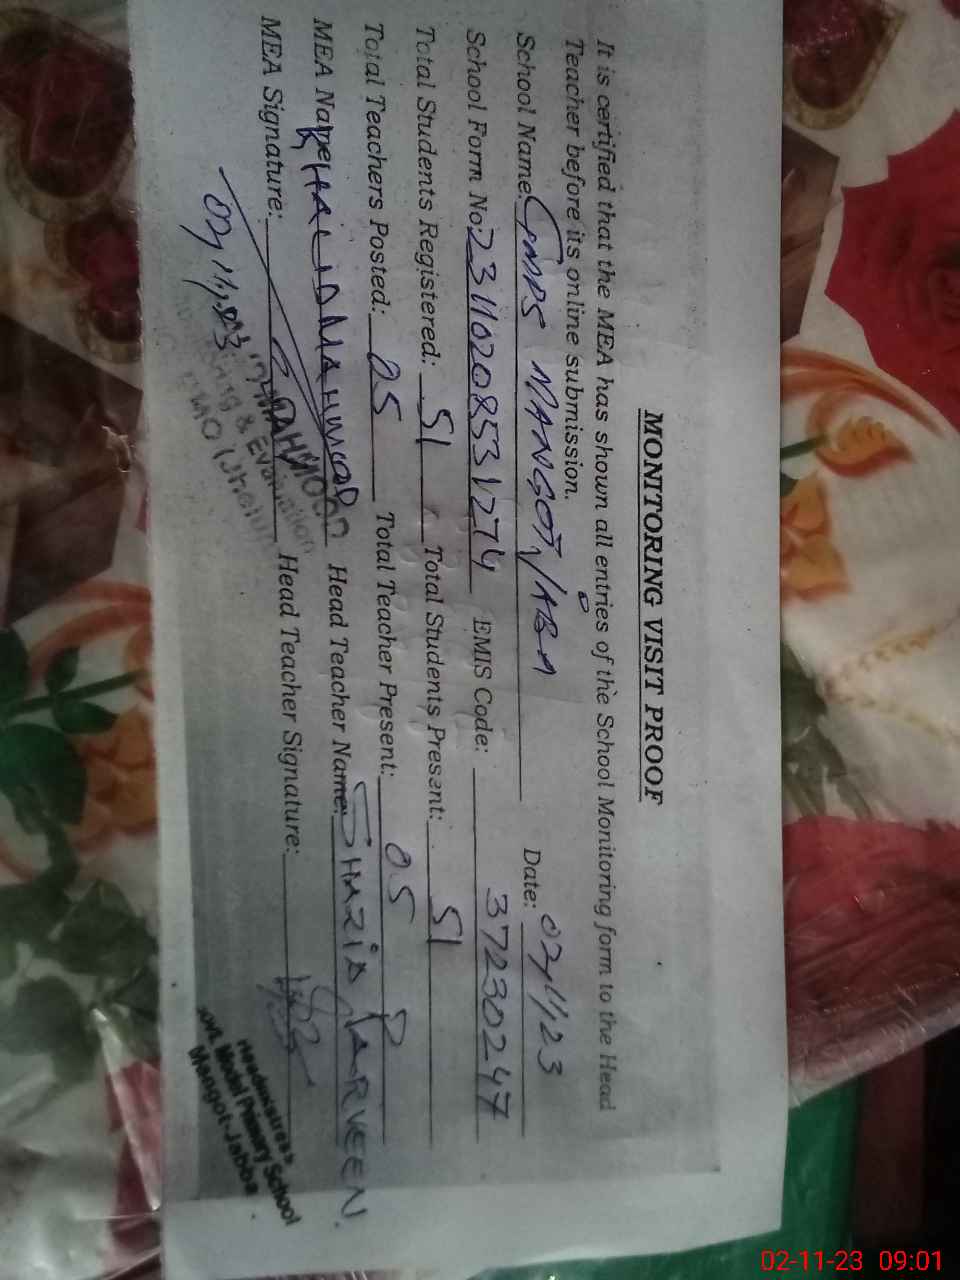 MONITORING VISIT PROOF
It is certified that the MEA has shown all entries of the School Monitoring form to the Head
Teacher before its online submission.
School Name: GMPS MANGOT JABA Date: 02/11/23
School Form No: 23110208531274 EMIS Code: 37230247
Total Students Registered: 51 Total Students Present: 51
Total Teachers Posted: 05 Total Teacher Present: 05
MEA Name: KHALID MAHMOOD Head Teacher Name: SHAZIA PARVEEN.
MEA Signature: Head Teacher Signature:
02/11/23
MAHMOOD
& Evaluation
Headmistress
Govt. Model Primary School
Mangot-Jabba.
02-11-23 09:01